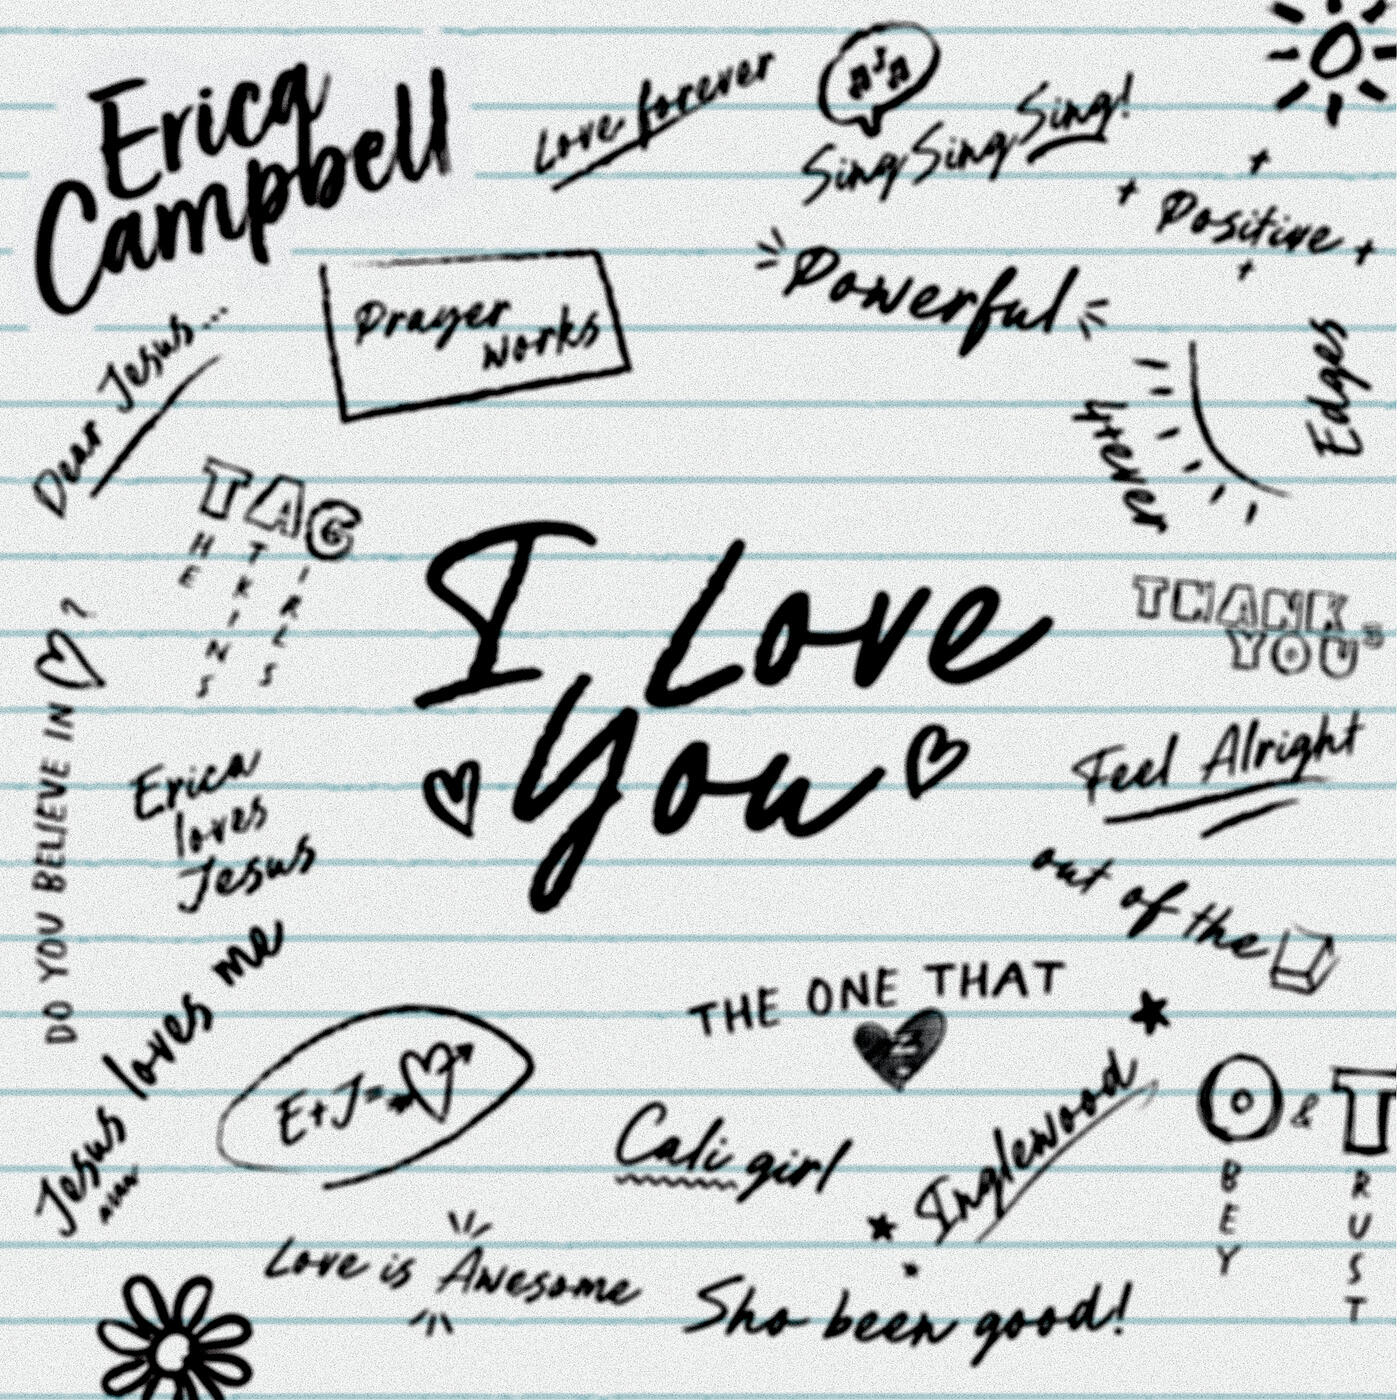 Erica
Campbell
Love forever
Sing Sing Sing!
Positive
Powerful
Prayer
works
Dear Jesus...
4+ever
Edges
TAG
THE
ATKINS
GIRLS
I Love
You
THANK
YOU'S
DO YOU BELIEVE IN ?
Erica
loves
Jesus
Feel Alright
out of the
Jesus loves me
THE ONE THAT
E+J=
Cali girl
Inglewood
O & T
OBEY
TRUST
Love is Awesome
Sho been good!